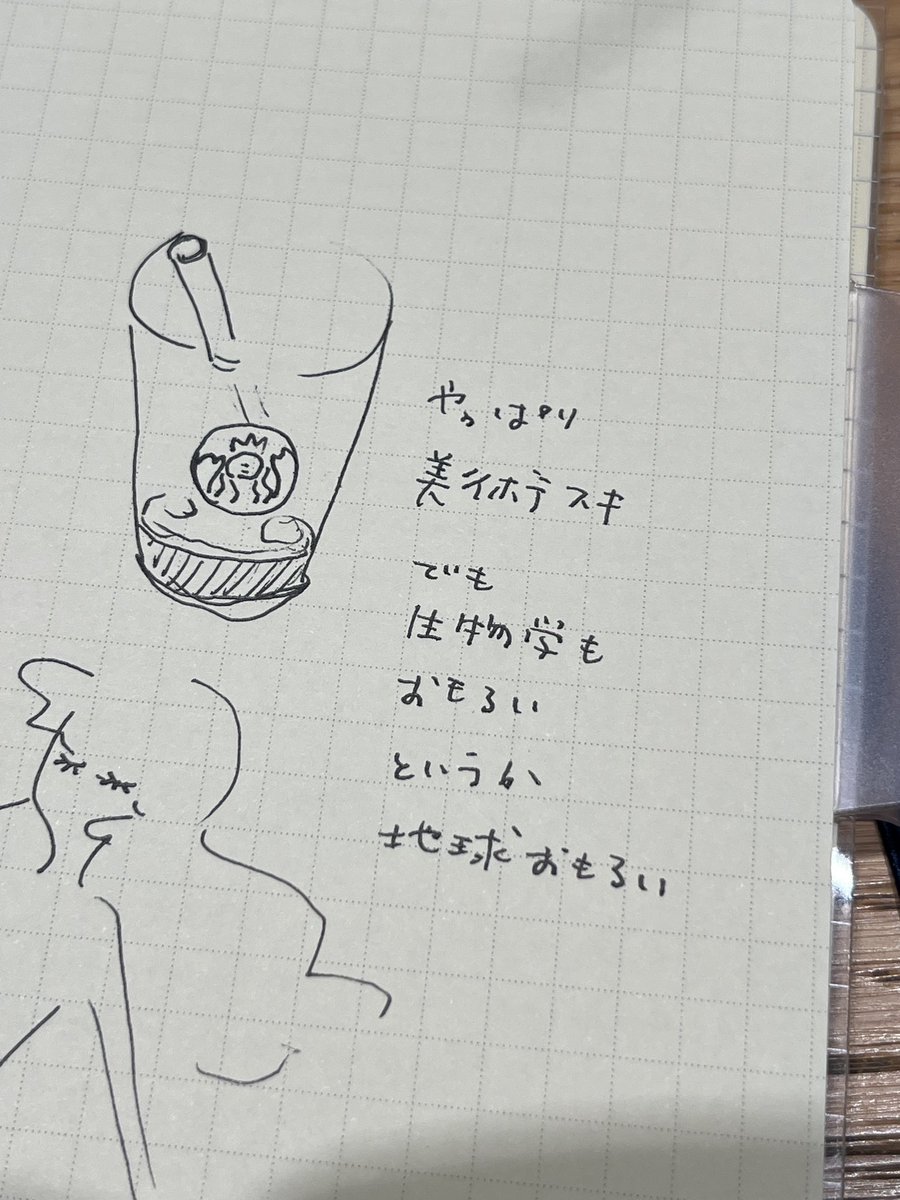 やっぱり
美術スキ
でも
生物学も
おもろい
というか
地球おもろい